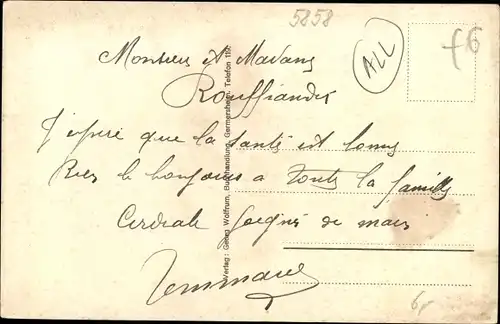 5858
ALL
f6
Monsieur et Madame
Rouffiandis
J'espere que la santé est bonne
Bien le bonjour a toute la famille
Cordiale poignée de main
Verlag: Georg Wolfrum, Buchhandlung, Germersheim, Telefon 119.